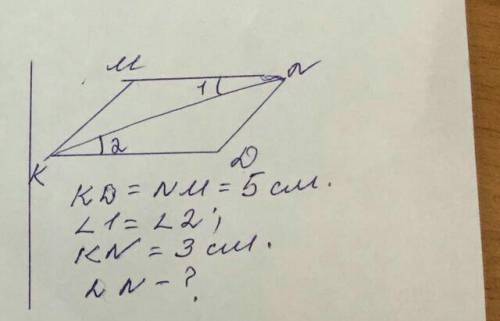 M N
1
2
K D
KD = NM = 5 см.
∠1 = ∠2;
KN = 3 см.
DN - ?